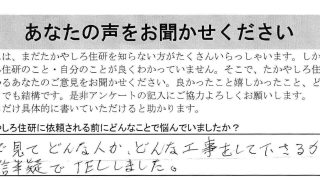 あなたの声をお聞かせください
は、まだたかやしろ住研を知らない方がたくさんいらっしゃいます。しか
住研のこと・自分のことが良くわかっていません。そこで、たかやしろ住
るあなたのご意見をお聞かせください。良かったこと嬉しかったこと、ど
でも結構です。是非アンケートの記入にご協力よろしくお願いします。
だけ具体的に書いていただけると助かります。
やしろ住研に依頼される前にどんなことで悩んでいましたか？
で見て どんな人か、どんな工事をして下さるか
半疑で TELしました。